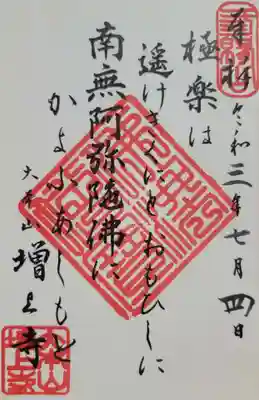 奉拝 令和三年七月四日
極楽は
遥けきくにとおもひしに
南無阿弥陀佛に
かよふあしもと
大本山 増上寺